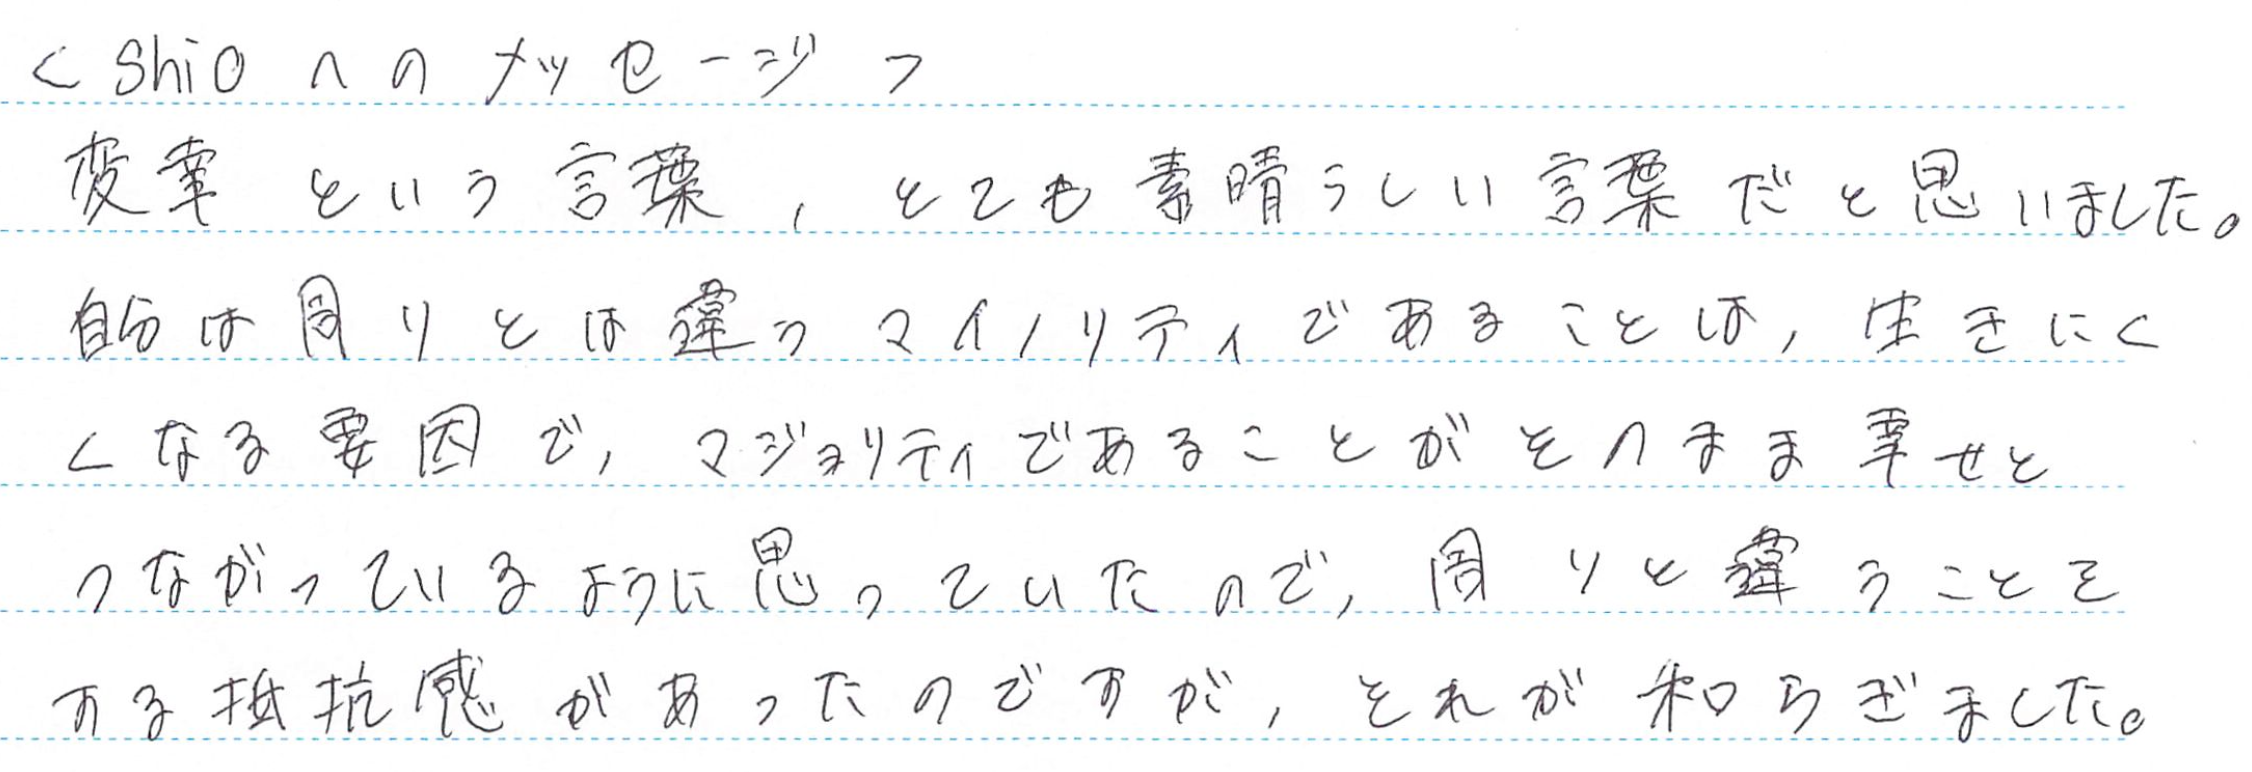 ＜Shioへのメッセージ＞
変幸という言葉，とても素晴らしい言葉だと思いました。
自分は周りとは違うマイノリティであることは，生きにく
くなる要因で，マジョリティであることがそのまま幸せと
つながっているように思っていたので，周りと違うことを
する抵抗感があったのですが，それが和らぎました。